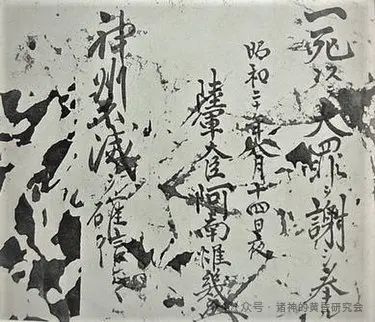 一死以大罪ヲ謝シ奉ル
昭和二十年八月十四日夜
陸軍大臣阿南惟幾
神州不滅ヲ確信シツヽ
公众号 · 诸神的黄昏研究会